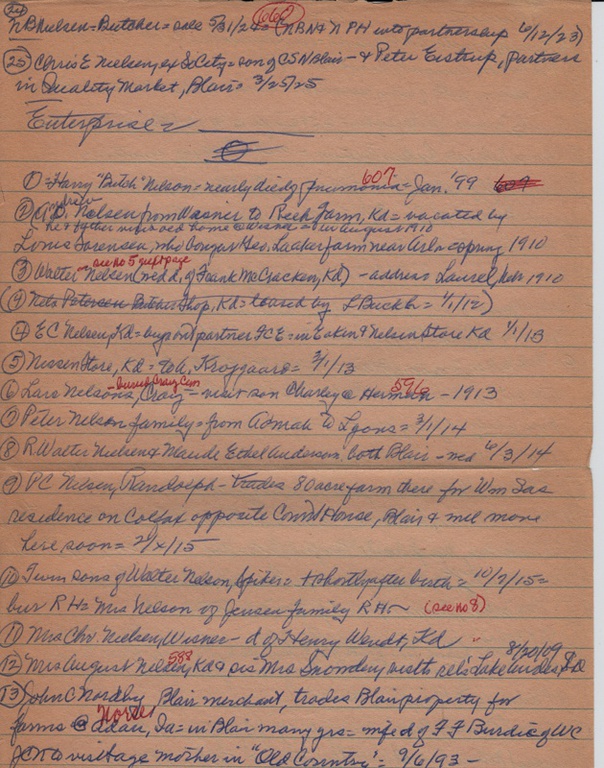 24
NB Nielsen = Butcher = sale 5/31/24 = (NBN & N PH into partnership 6/12/23)
25 Chris E Nielsen, ex So City = son of CSN Blair - & Peter Eistrup, partners
in Quality Market, Blair = 3/25/25
Enterprise =
1 = Harry "Butch" Nelson = nearly died of pneumonia = Jan. '99 607
2 Nelsen from Wisner to Farm, Kd = vacated by
he & father visit old home @ = in August 1910
Louis Sorensen, who bought Geo. Laaker farm near Arl = spring 1910
see no 5 next page
3 Walter Nelsen (wed d. of Frank McCracken, Kd) - address Laurel, Neb 1910
(9 Nels Petersen Butcher Shop, Kd = leased by L = 1/1/12)
4 EC Nelsen, Kd = buys out partner = in Eakin & Nelsen Store Kd 1/1/13
5 Nissen Store, Kd = to A. Kroggaard = 3/1/13
buried Craig Cem
6 Lars Nelsons, Craig = visit son Charley @ Herman - 1913
7 Peter Nelson family = from Admah to Lyons = 3/1/14
8 R Walter Nielsen & Maude Ethel Anderson both Blair - wed 6/3/14
9 PC Nelsen, Randolph - trades 80 acre farm there for Wm Sas
residence on Colfax opposite Court House, Blair & will move
here soon = 2/x/15
10 Twin sons of Walter Nelson, Spiker = + shortly after birth = 10/7/15 =
bur RH = Mrs Nelson of Jensen family RH ~ (see no 8)
11 Mrs Chr Nielsen, Wisner - d of Henry Wendt, Kd "
8/20/09
12 Mrs August Nelsen, 588 Kd & sis Mrs visit rels Lake Andes, S D
13 John C Nordby Blair merchant, trades Blair property for
farms @ Adair, Ia = in Blair many yrs = wife d of F F Burdic of WC
JCN to visit age mother in "Old Country" = 9/6/93 -